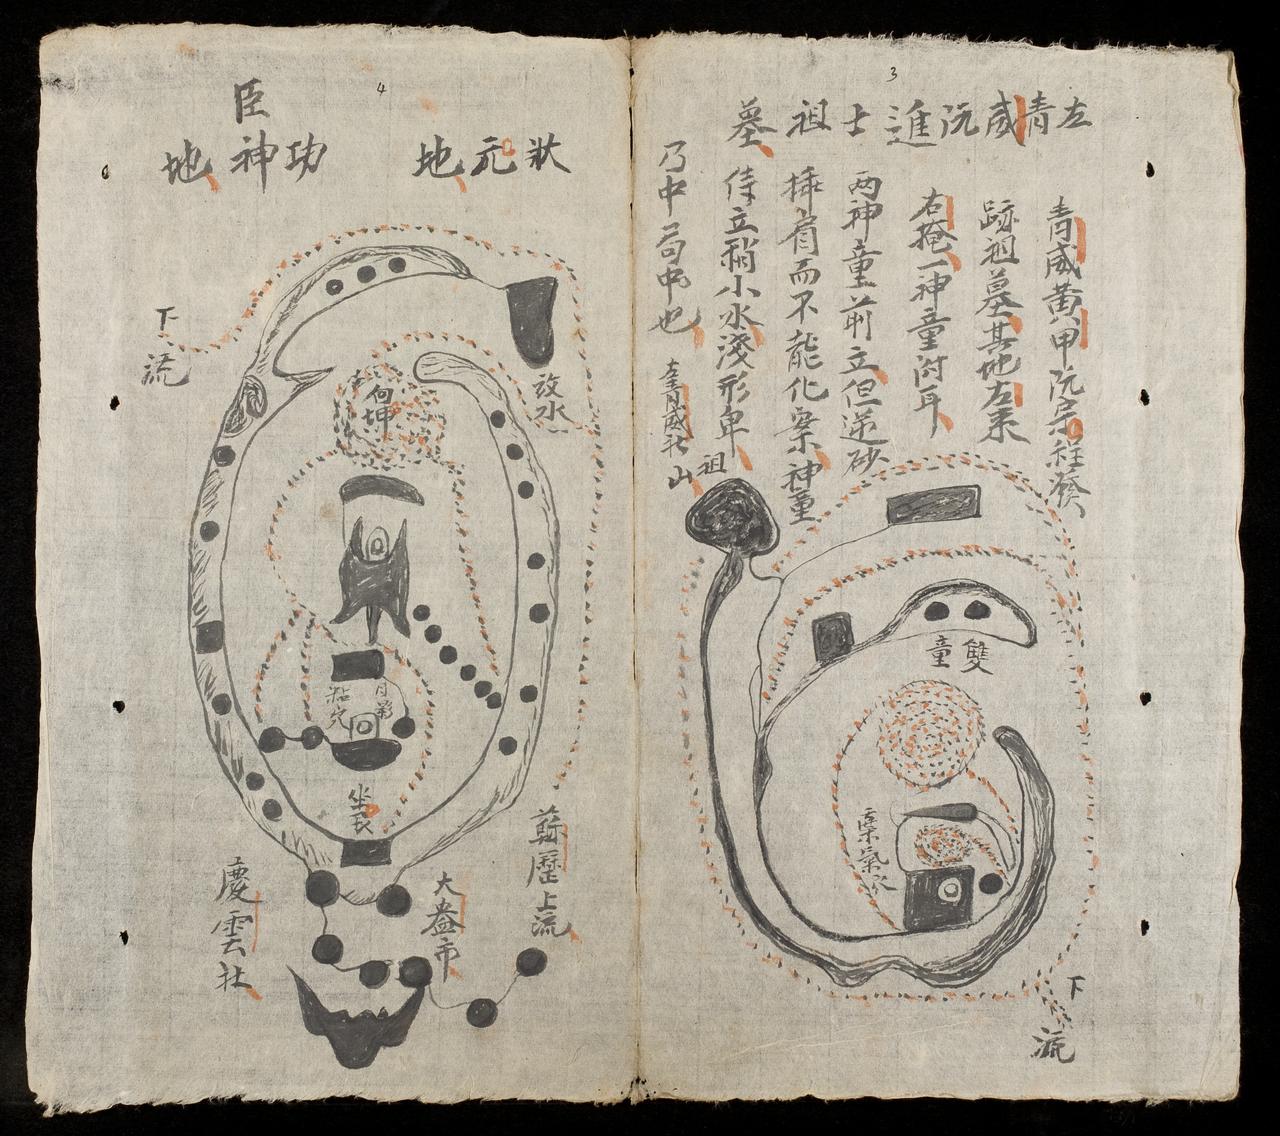 3
左青威阮進士祖墓
青威黃甲阮宗程發
跡祖墓其地左末
右掩一神童附耳
两神童前立但逆砂
揷肩而不能化案神童
侍立稍小水淺形卑
乃中局中也
左青威社
祖山
雙童
案氣水
下流
4
狀元地
功臣神地
下流
改水
向坤
月弟
粘穴
坐艮
蘇歷上流
大盎市
慶雲社